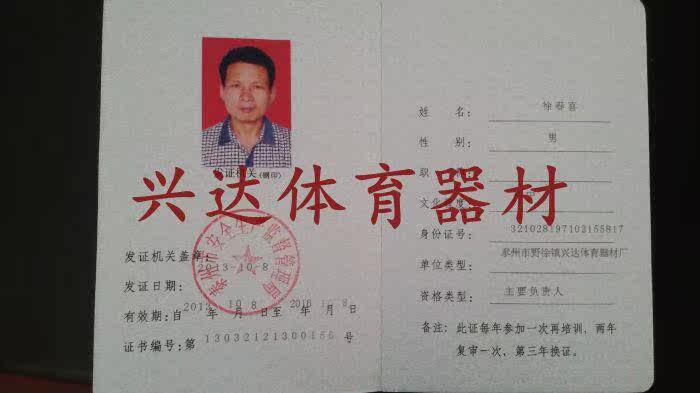 发证机关(钢印)
兴达体育器材
泰州市安全生产监督管理局
发证机关盖章:
2013-10-8
发证日期:
2013 10 8 2016 10 8
有效期:自 年 月 日至 年 月 日
证书编号:第 13032121300156 号
姓 名: 徐春喜
性 别: 男
职
文化程度:
身份证号: 321028197102155817
单位类型: 泰州市野徐镇兴达体育器材厂
资格类型: 主要负责人
备注: 此证每年参加一次再培训,两年
复审一次,第三年换证。